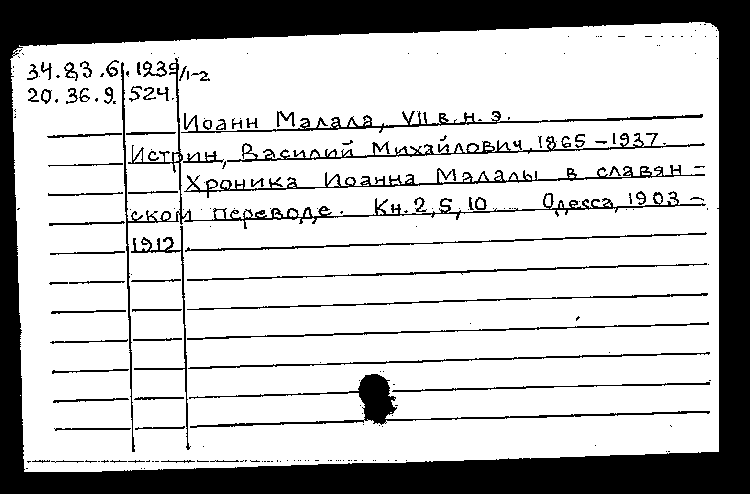 34.83.6. 1239/1-2
20.36.9. 524.
Иоанн Малала, VII в. н. э.
Истрин, Василий Михайлович, 1865-1937.
Хроника Иоанна Малалы в славян-
ском переводе. Кн. 2, 5, 10 Одесса, 1903-
1912